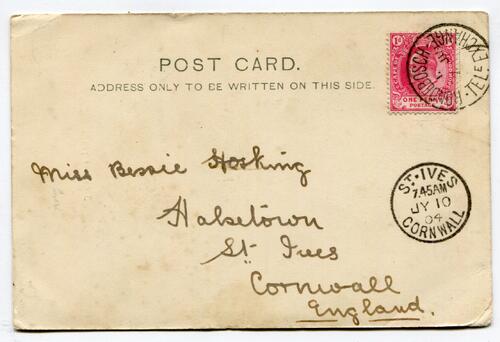 POST CARD.
ADDRESS ONLY TO BE WRITTEN ON THIS SIDE.
1d 1d
ONE PENNY
POSTAGE
TELE. EXCHANGE
ST. IVES
7.45AM
JY 10
04
CORNWALL
Miss Bessie Hosking
Halsetown
St. Ives
Cornwall
England.